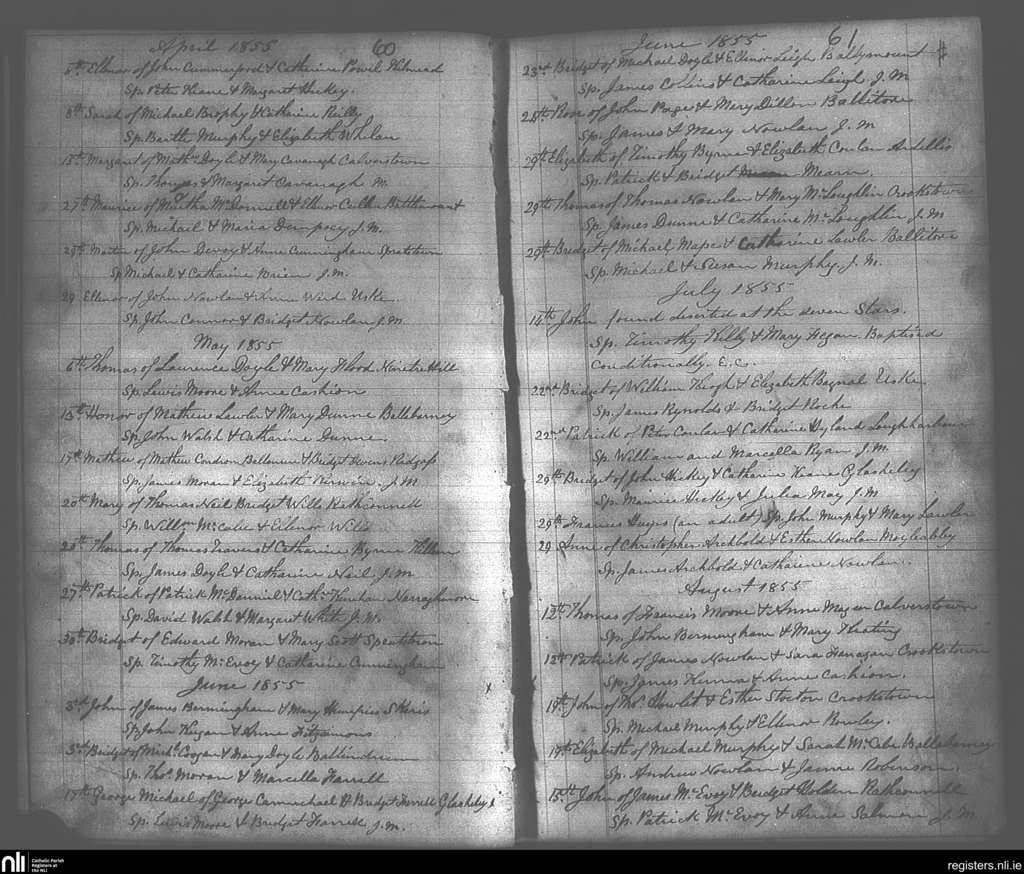 April 1855 60
5th Ellenor of John Cummerford & Catherine Powel
Sp. Peter Keane & Margaret Hickey.
8th Sarah of Michael Brophy & Catharine Reilly
Sp. Barth Murphy & Elizabeth Whelan
15th Margaret of Mathw Doyle & Mary Cavanagh Calverstown
Sp. Thomas & Margaret Cavanagh M.
27th Maurice of Martha McDonnell & Ellenor
Sp. Michael & Maria Dempsey J.M.
28th Martin of John Devoy & Anne Cunningham Spratstown
Sp Michael & Catharine Brien J.M.
29 Ellenor of John Nowlan & Anne Ward Uske
Sp. John Connor & Bridget Nowlan J.M.
May 1855
6th Thomas of Laurence Doyle & Mary Flood Hill
Sp. Lewis Moore & Anne Cashion
13th Honor of Mathew Lawler & Mary Dunne Ballabarney
Sp. John Walsh & Catharine Dunne.
17th Mathew of Mathew Condron & Bridget
Sp. James Moran & Elizabeth Kirwin. J.M
20th Mary of Thomas Neil Bridget Wills Rathconnell
Sp. Willm McCabe & Ellenor Wills
20th Thomas of Thomas Travers & Catharine Byrne
Sp. James Doyle & Catharine Neil J.M
27th Patrick of Patrick McDaniel & Cathe Narraghmore
Sp. David Walsh & Margaret White J.M.
30th Bridget of Edward Moran & Mary Scott
Sp. Timothy McEvoy & Catharine Cunningham
June 1855
3rd John of James Bermingham & Mary Humpries
Sp John Keegan & Anne Fitzsimons
3rd Bridget of Michl Coogan & Mary Doyle Ballindrum
Sp. Thos. Moran & Marcella Farrell
17th George Michael of George Carmichael & Bridget Farrell Glasheley
Sp. Lewis Moore & Bridget Farrell J.M.
June 1855 61
23rd Bridget of Michael Doyle & Ellinor Leigh Ballymount
Sp. James Collins & Catharine Leigh J.M
28th Rose of John Page & Mary Dillon Ballitore
Sp. James & Mary Nowlan J.M
29th Elizabeth of Timothy Byrne & Elizabeth Conlan Ardellis
Sp. Patrick & Bridget Mearn.
29th Thomas of Thomas Nowlan & Mary McLoughlin Crookstown
Sp. James Dunne & Catharine McLoughlin J.M
29th Bridget of Michael Mape & Catharine Lawler Ballitore
Sp. Michael & Susan Murphy J.M.
July 1855
14th John found deserted at the seven Stars.
Sp. Timothy Killy & Mary Hegan. Baptised
Conditionally. E.C.
22nd Bridget of William Keogh & Elizabeth Bagnal Uske
Sp. James Reynolds & Bridget Roche
22nd Patrick of Peter Conlan & Catharine Hyland
Sp. William and Marcella Ryan J.M.
29th Bridget of John Hickey & Catharine Keane Glasheley
Sp. Maurice Hickey & Julia May J.M
29th Francis (an adult) Sp. John Murphy & Mary Lawler
29 Anne of Christopher Archbold & Esther Nowlan Moyleabby
Sp. James Archbold & Catharine Nowlan.
August 1855
12th Thomas of Francis Moore & Anne Calverstown
Sp. John Bermingham & Mary Keating
12th Patrick of James Nowlan & Sara Hanagan Crookstown
Sp. James Kenna & Anne Cashion.
19th John of Thos. Howlet & Esther Crookstown
Sp. Michael Murphy & Ellenor Rowley.
19th Elizabeth of Michael Murphy & Sarah McCabe Ballabarney
Sp. Andrew Nowlan & Jane Robinson.
15th John of James McEvoy & Bridget Holden Rathconnell
Sp. Patrick McEvoy & Anne Salmon J.M.
nli
Catholic Parish
Registers at
the NLI
registers.nli.ie